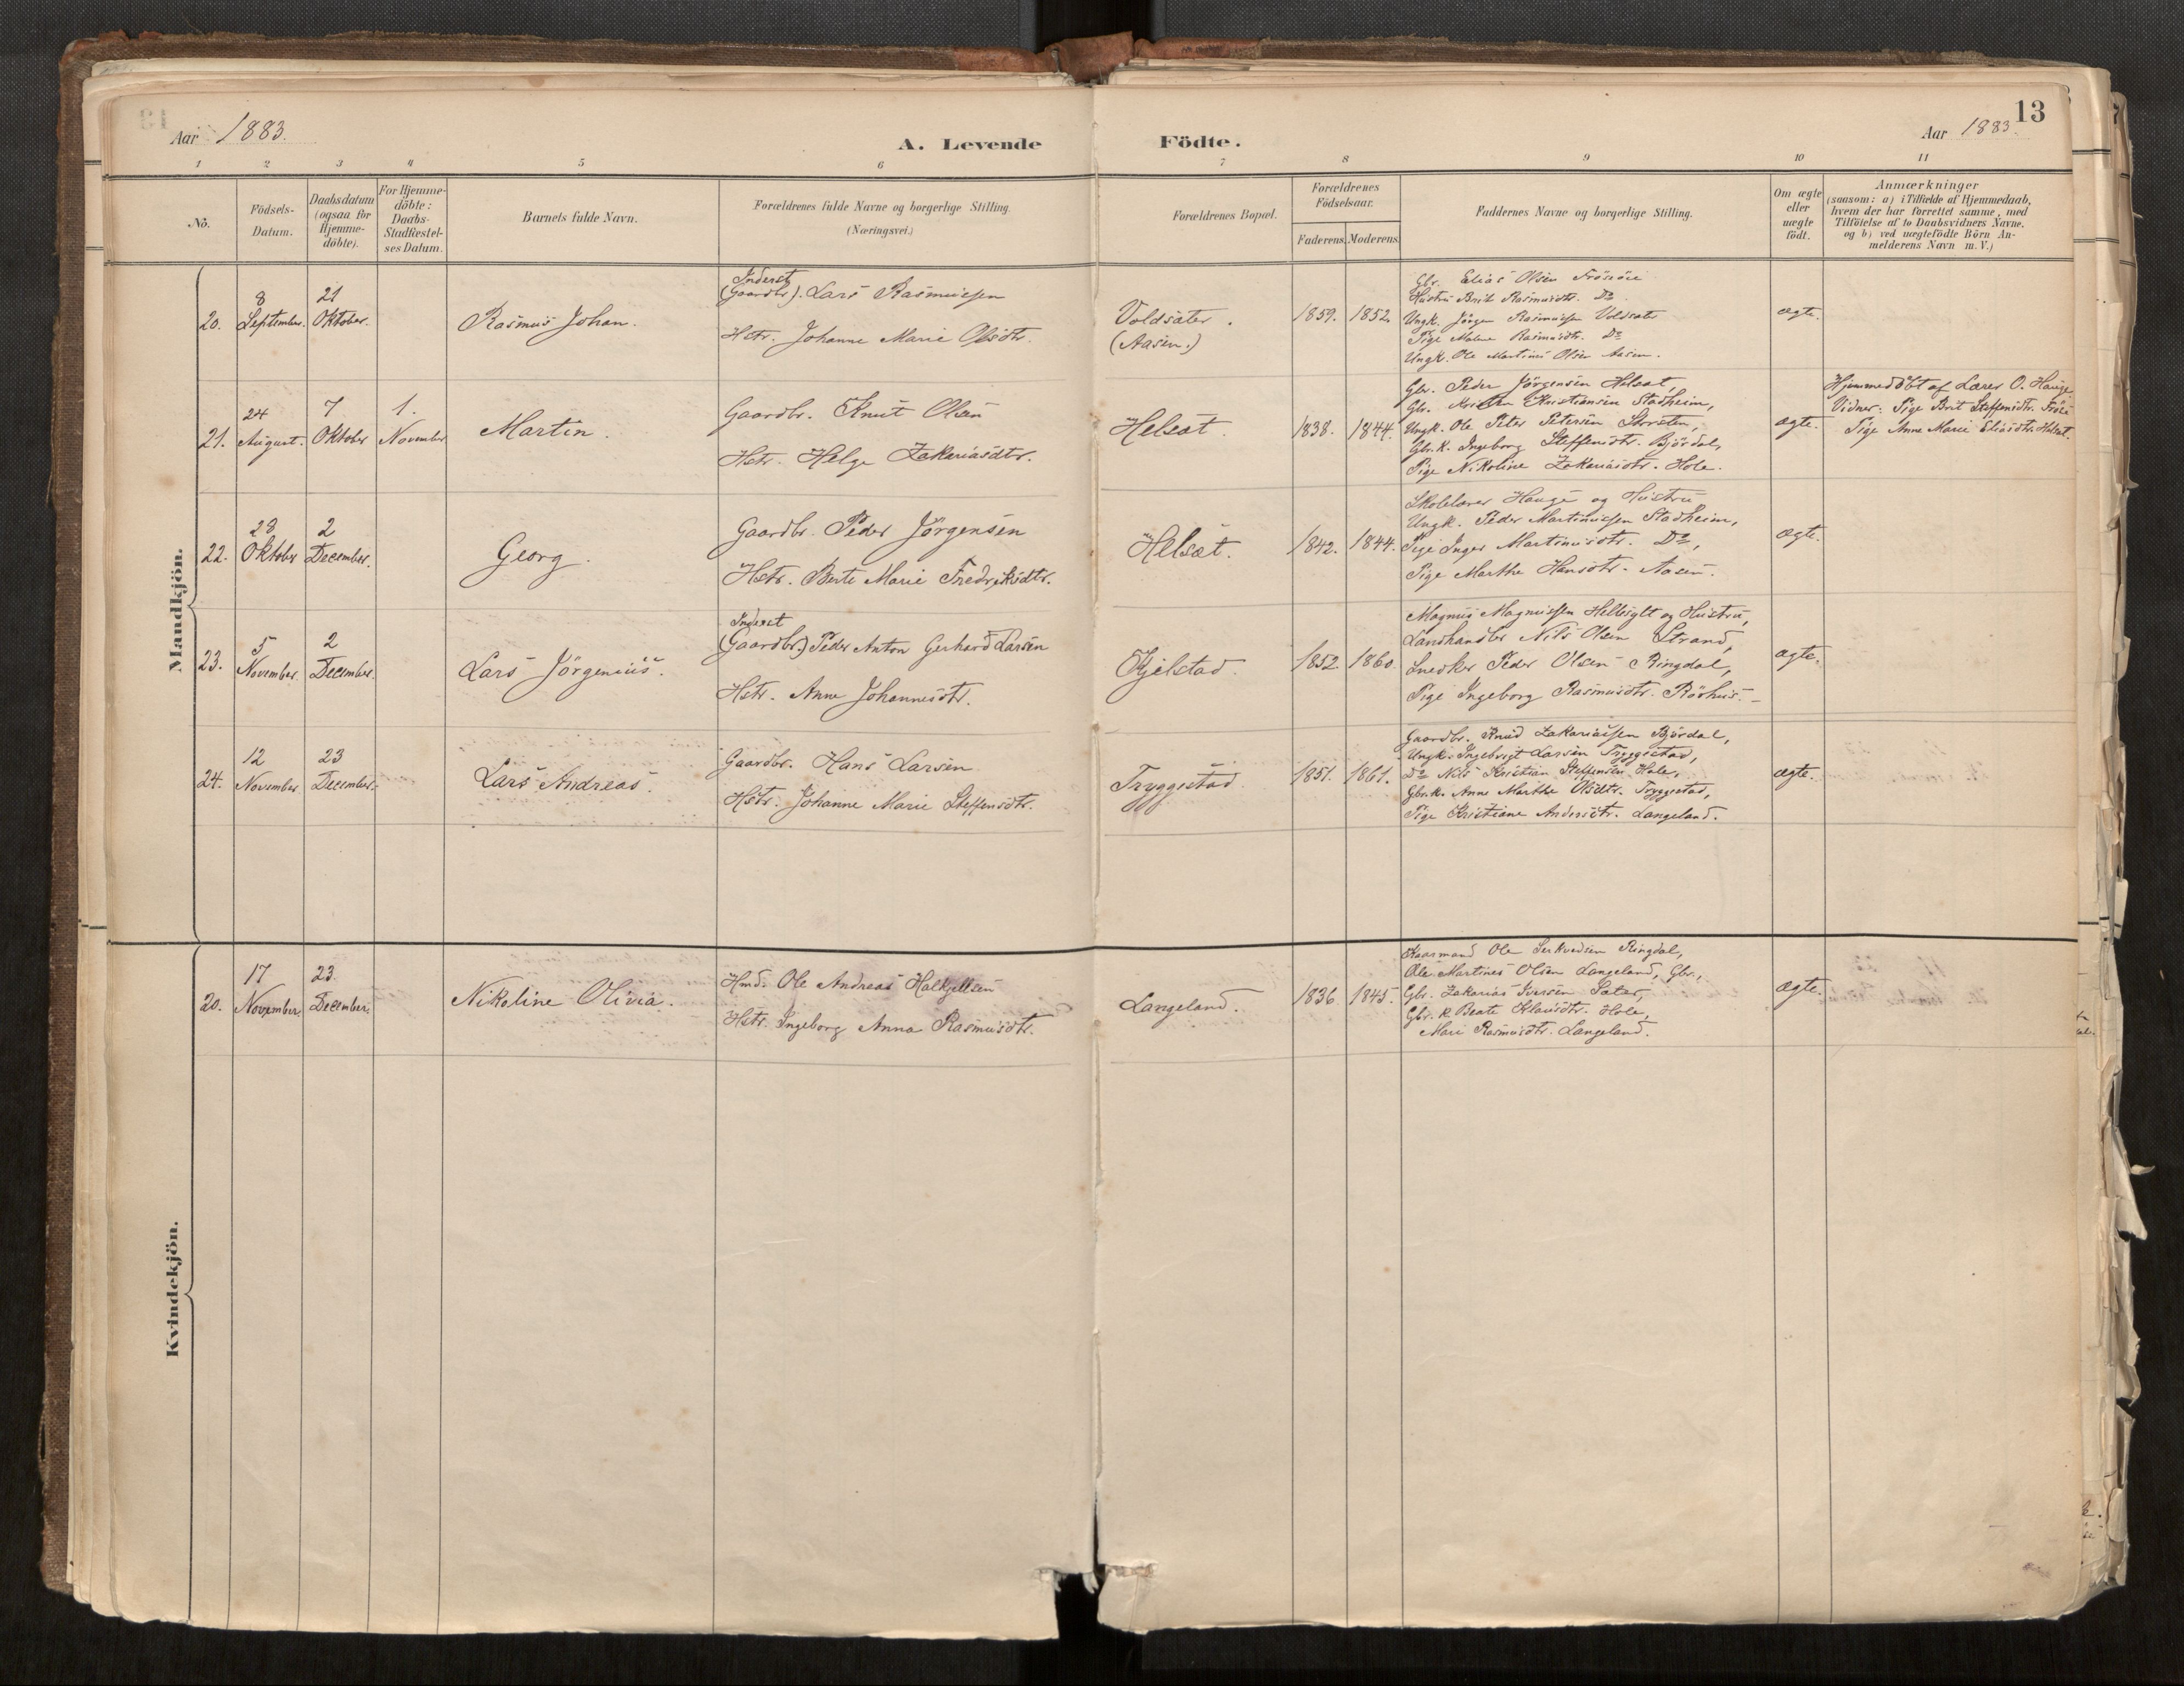 13
Aar 1883.
A. Levende Födte.
Aar 1883.
1 2 3 4 5 6 7 8 9 10 11
No.
Födsels-Datum.
Daabsdatum (ogsaa for Hjemme-döbte).
For Hjemme-döbte: Daabs-Stadfæstel-ses Datum.
Barnets fulde Navn.
Forældrenes fulde Navne og borgerlige Stilling. (Næringsvei.)
Forældrenes Bopæl.
Forældrenes Födselsaar.
Faderens. Moderens.
Faddernes Navne og borgerlige Stilling.
Om ægte eller uægte födt.
Anmærkninger
(saasom: a) i Tilfælde af Hjemmedaab,
hvem der har forrettet samme, med
Tilföielse af to Daabsvidners Navne.
og b) ved uægtefödte Börn An-
melderens Navn m. V.)
Mandkjön.
20.
8 September.
21 Oktober.
Rasmus Johan.
Inderst
(Gaardbr.). Lars Rasmussen
Hstr. Johanne Marie Olsdtr.
Voldsæter.
(Aasen.)
1859. 1852.
Gbr. Elias Olsen
Hustru Brit Rasmusdtr. Do.
Ungk. Jörgen Rasmussen Voldsæter
Pige Malene Rasmusdtr. Do
Ungk. Ole Martinus Olsen Aasen.
ægte.
21.
24 August.
7 Oktober
1. November
Martin.
Gaardbr. Knut Olsen
Hstr. Helge Zakariasdtr.
Helsæt.
1838. 1844.
Gbr. Peder Jörgensen Helsæt,
Gbr. Kristen Kristiansen Stadheim,
Ungk. Ole Peter Petersen
Gbr.k. Ingeborg Steffensdtr. Björdal,
Pige Nikoline Zakariasdtr. Hole.
ægte.
Hjemmedöbt af Lærer O. Hauge
Vidner: Pige Brit Steffensdtr.
Pige Anne Marie Eliasdtr. Helsæt.
22.
28 Oktober
2 December.
Georg.
Gaardbr. Peder Jörgensen
Hstr. Berte Marie Fredriksdtr.
Helsæt.
1842. 1844.
Skolelærer Hauge og Hustru
Ungk. Peder Martinussen Stadheim,
Pige Inger Martinusdtr. Do,
Pige Marthe Hansdtr. Aasen.
ægte.
23.
5 November.
2 December.
Lars Jörgenius.
Inderst
(Gaardbr.) Peder Anton Gerhard Larsen
Hstr. Anne Johannesdtr.
Kjelstad.
1852. 1860.
Magnus Magnussen Hellesylt og Hustru,
Landhandler Nils Olsen Strand,
Snedker Peder Olsen Ringdal,
Pige Ingeborg Rasmusdtr. Rörhus.
ægte.
24.
12 November
23 December.
Lars Andreas.
Gaardbr. Hans Larsen
Hstr. Johanne Marie Steffensdtr.
Tryggestad
1851. 1861.
Gaardbr. Knud Zakariassen Björdal,
Ungk. Ingebrigt Larsen Tryggestad,
Do Nils Kristian Steffensen Hole,
Gbr.k. Anne Marthe Olsdtr. Tryggestad,
Pige Kristiane Andersdtr. Langeland.
ægte.
Kvindekjön.
20.
17 November.
23. December.
Nikoline Olivia.
Hmd. Ole Andreas Halkjellsen
Hstr. Ingeborg Anna Rasmusdtr.
Langeland.
1836. 1845.
Kaarmand Ole Ringdal,
Ole Martines Olsen Langeland, Gbr.,
Gbr. Zakarias Iversen Sæter,
Gbr. k. Beate Klausdtr. Hole,
Mari Rasmusdtr. Langeland.
ægte.